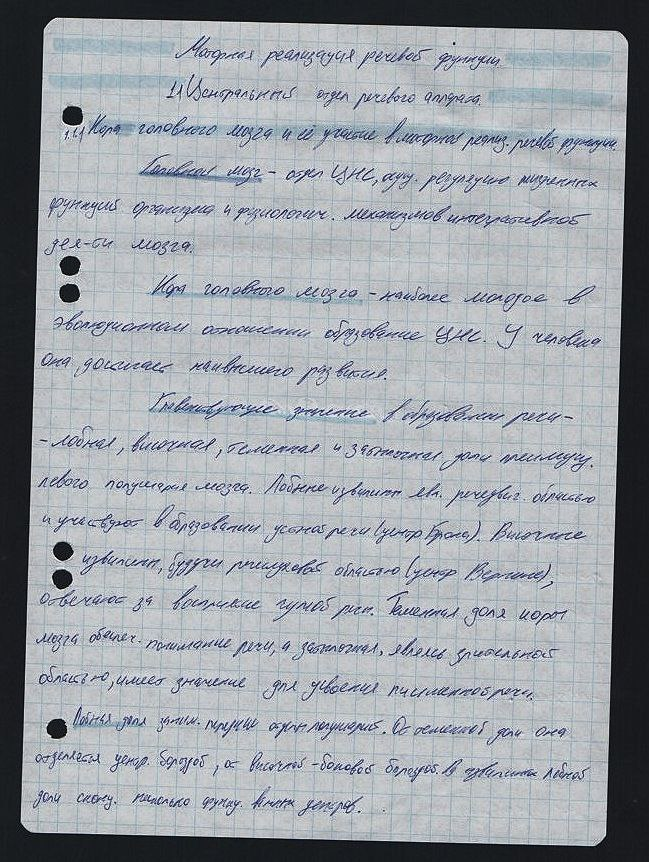 Моторная реализация речевой функции.
1.1 Центральный отдел речевого аппарата.
1.1.1 Кора головного мозга и её участие в моторной реализ. речевой функции.
Головной мозг – отдел ЦНС, осущ. регуляцию жизненных
функций организма и физиологич. механизмов интегративной
деят-ти мозга.
Кора головного мозга – наиболее молодое в
эволюционном отношении образование ЦНС. У человека
она достигает наивысшего развития.
значение в образовании речи –
– лобная, височная, теменная и затылочная доли преимущ.
левого полушария мозга. Лобные извилины явл. речедвиг. областью
и участвуют в образовании устной речи (центр Брока). Височные
извилины, будучи речеслуховой областью (центр Вернике),
отвечают за восприятие чужой речи. Теменная доля коры
мозга обеспеч. понимание речи, а затылочная, являясь зрительной
областью, имеет значение для усвоения письменной речи.
Лобная доля заним. передние отделы полушарий. От теменной доли она
отделяется центр. бороздой, от височной – боковой бороздой. В извилинах лобной
доли сконц. несколько функц. важных центров.